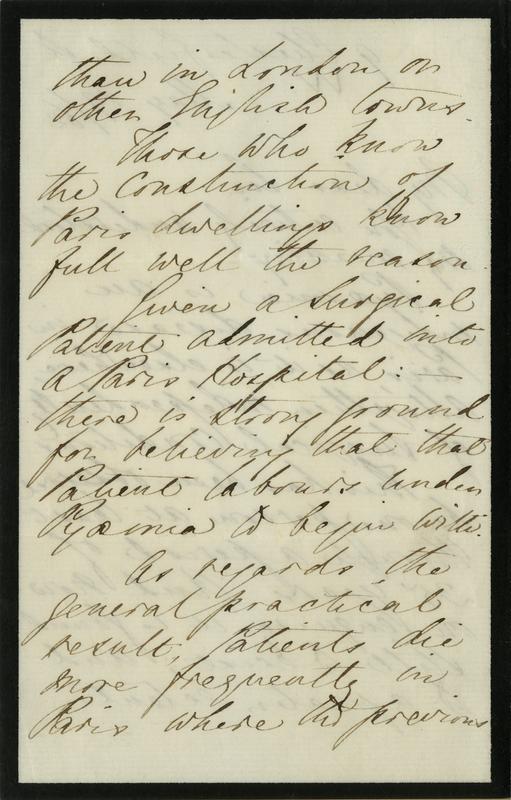 than in London or
other English towns.
Those who know
the construction of
Paris dwellings know
full well the reason.
Given a Surgical
Patient admitted into
a Paris Hospital: —
there is strong ground
for believing that that
Patient labours under
Pyæmia to begin with.
As regards the
general practical
result, Patients die
more frequently in
Paris where the previous